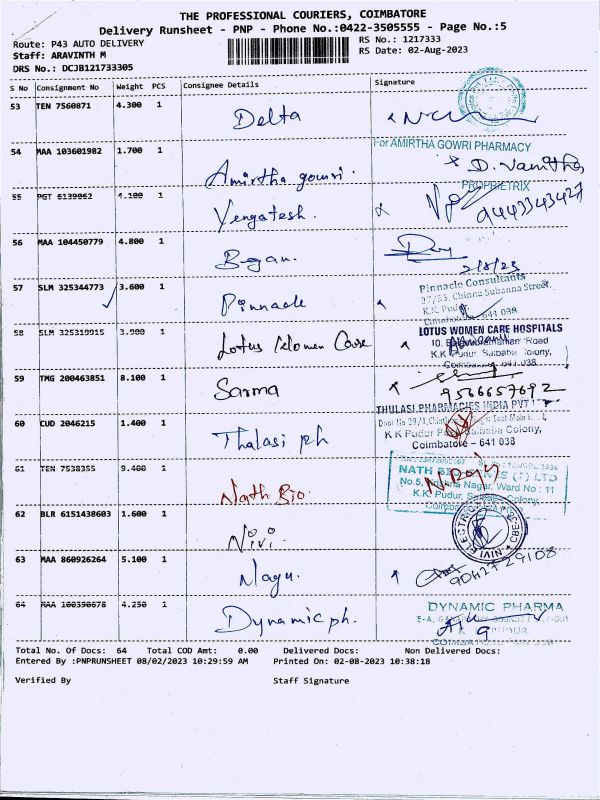 THE PROFESSIONAL COURIERS, COIMBATORE
Delivery Runsheet - PNP - Phone No.:0422-3505555 - Page No.:5
Route: P43 AUTO DELIVERY
RS No.: 1217333
Staff: ARAVINTH M
RS Date: 02-Aug-2023
DRS No.: DCJB121733305
S No Consignment No Weight PCS Consignee Details Signature
53 TEN 7560871 4.300 1 Delta
54 MAA 103601982 1.700 1 Amirtha gowri.
For AMIRTHA GOWRI PHARMACY
D. Vanitha
PROPRIETRIX
55 PGT 6139062 4.100 1 Vengatesh.
9443343427
56 MAA 104450779 4.800 1 Began.
2/8/23
57 SLM 325344773 3.600 1 Pinnacle
Pinnacle Consultants
37/33, Chinna Subanna Street,
K.K. Pudur,
Coimbatore -641 038
58 SLM 325319915 3.900 1 Lotus Women Care
LOTUS WOMEN CARE HOSPITALS
10, Road
K.K Pudur Saibaba Colony,
Coimbatore 641 038
59 TMG 200463851 8.100 1 Sarma
9566657692
60 CUD 2046215 1.400 1 Thalasi ph
THULASI PHARMACIES INDIA PVT
K.K Pudur Saibaba Colony,
Coimbatore - 641 038
61 TEN 7538355 9.400 1 Nath Bio.
NATH BIO (I) LTD
No.5, Krishna Nagar, Ward No : 11
K.K. Pudur, Colony,
62 BLR 6151438603 1.600 1 Nivi.
NIVI ELECTRIC
63 MAA 860926264 5.100 1 Nagu.
9042729108
64 MAA 100390678 4.250 1 Dynamic ph.
DYNAMIC PHARMA
Total No. Of Docs: 64 Total COD Amt: 0.00 Delivered Docs: Non Delivered Docs:
Entered By :PNPRUNSHEET 08/02/2023 10:29:59 AM Printed On: 02-08-2023 10:38:18
Verified By Staff Signature